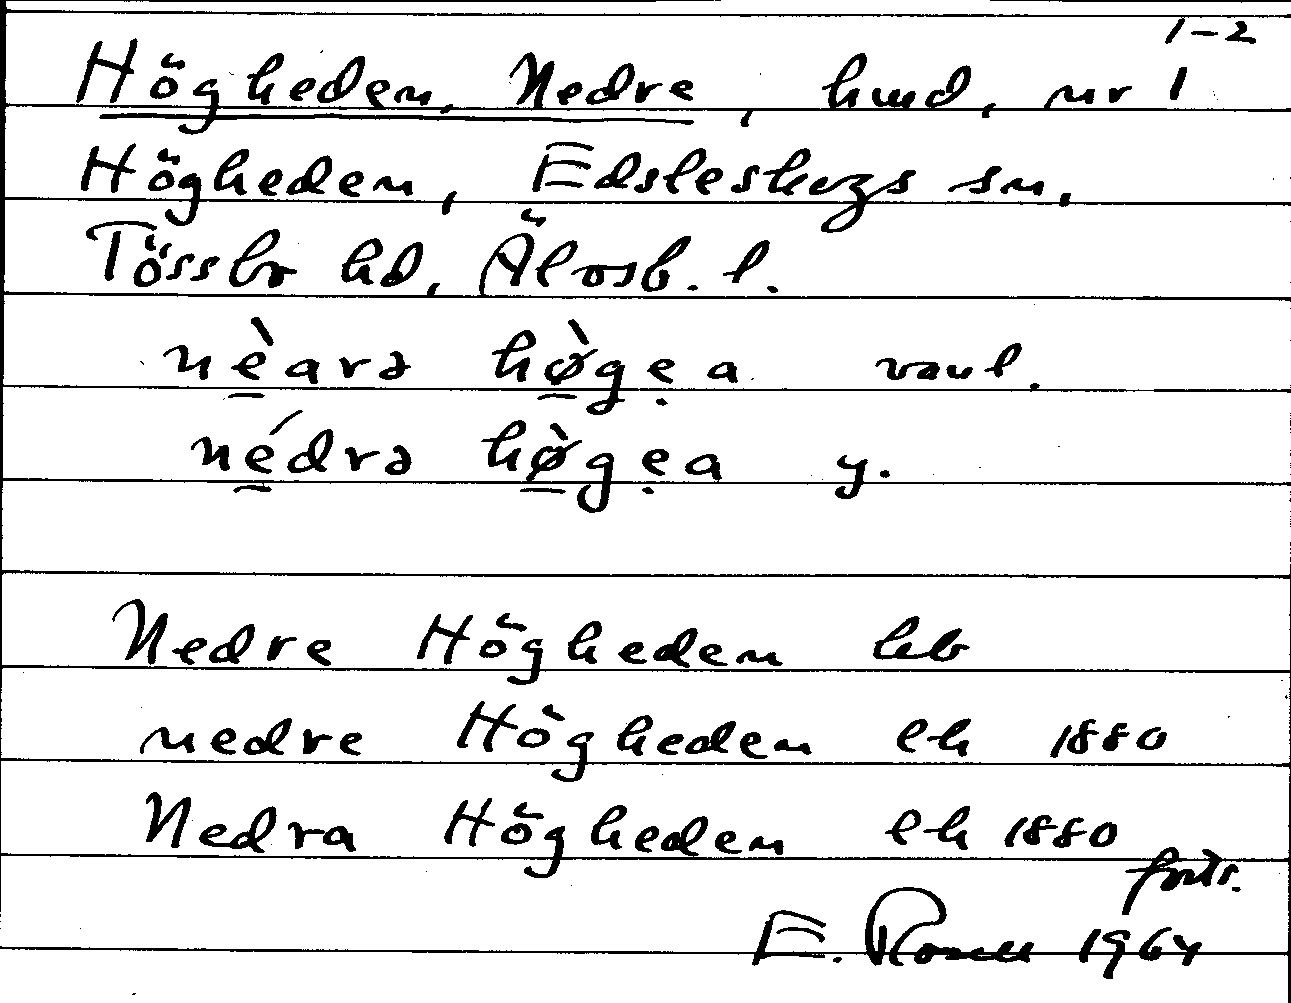 1-2
Högheden, Nedre, hmd, nr 1
Högheden, Edsleskogs sn,
Tössbo hd, Älvsb. l.
nèarə hø̀gẹa vanl.
nédrə hø̀gẹa y.
Nedre Högheden hb
nedre Högheden ek 1880
Nedra Högheden ek 1880
forts.
E. Rosell 1964